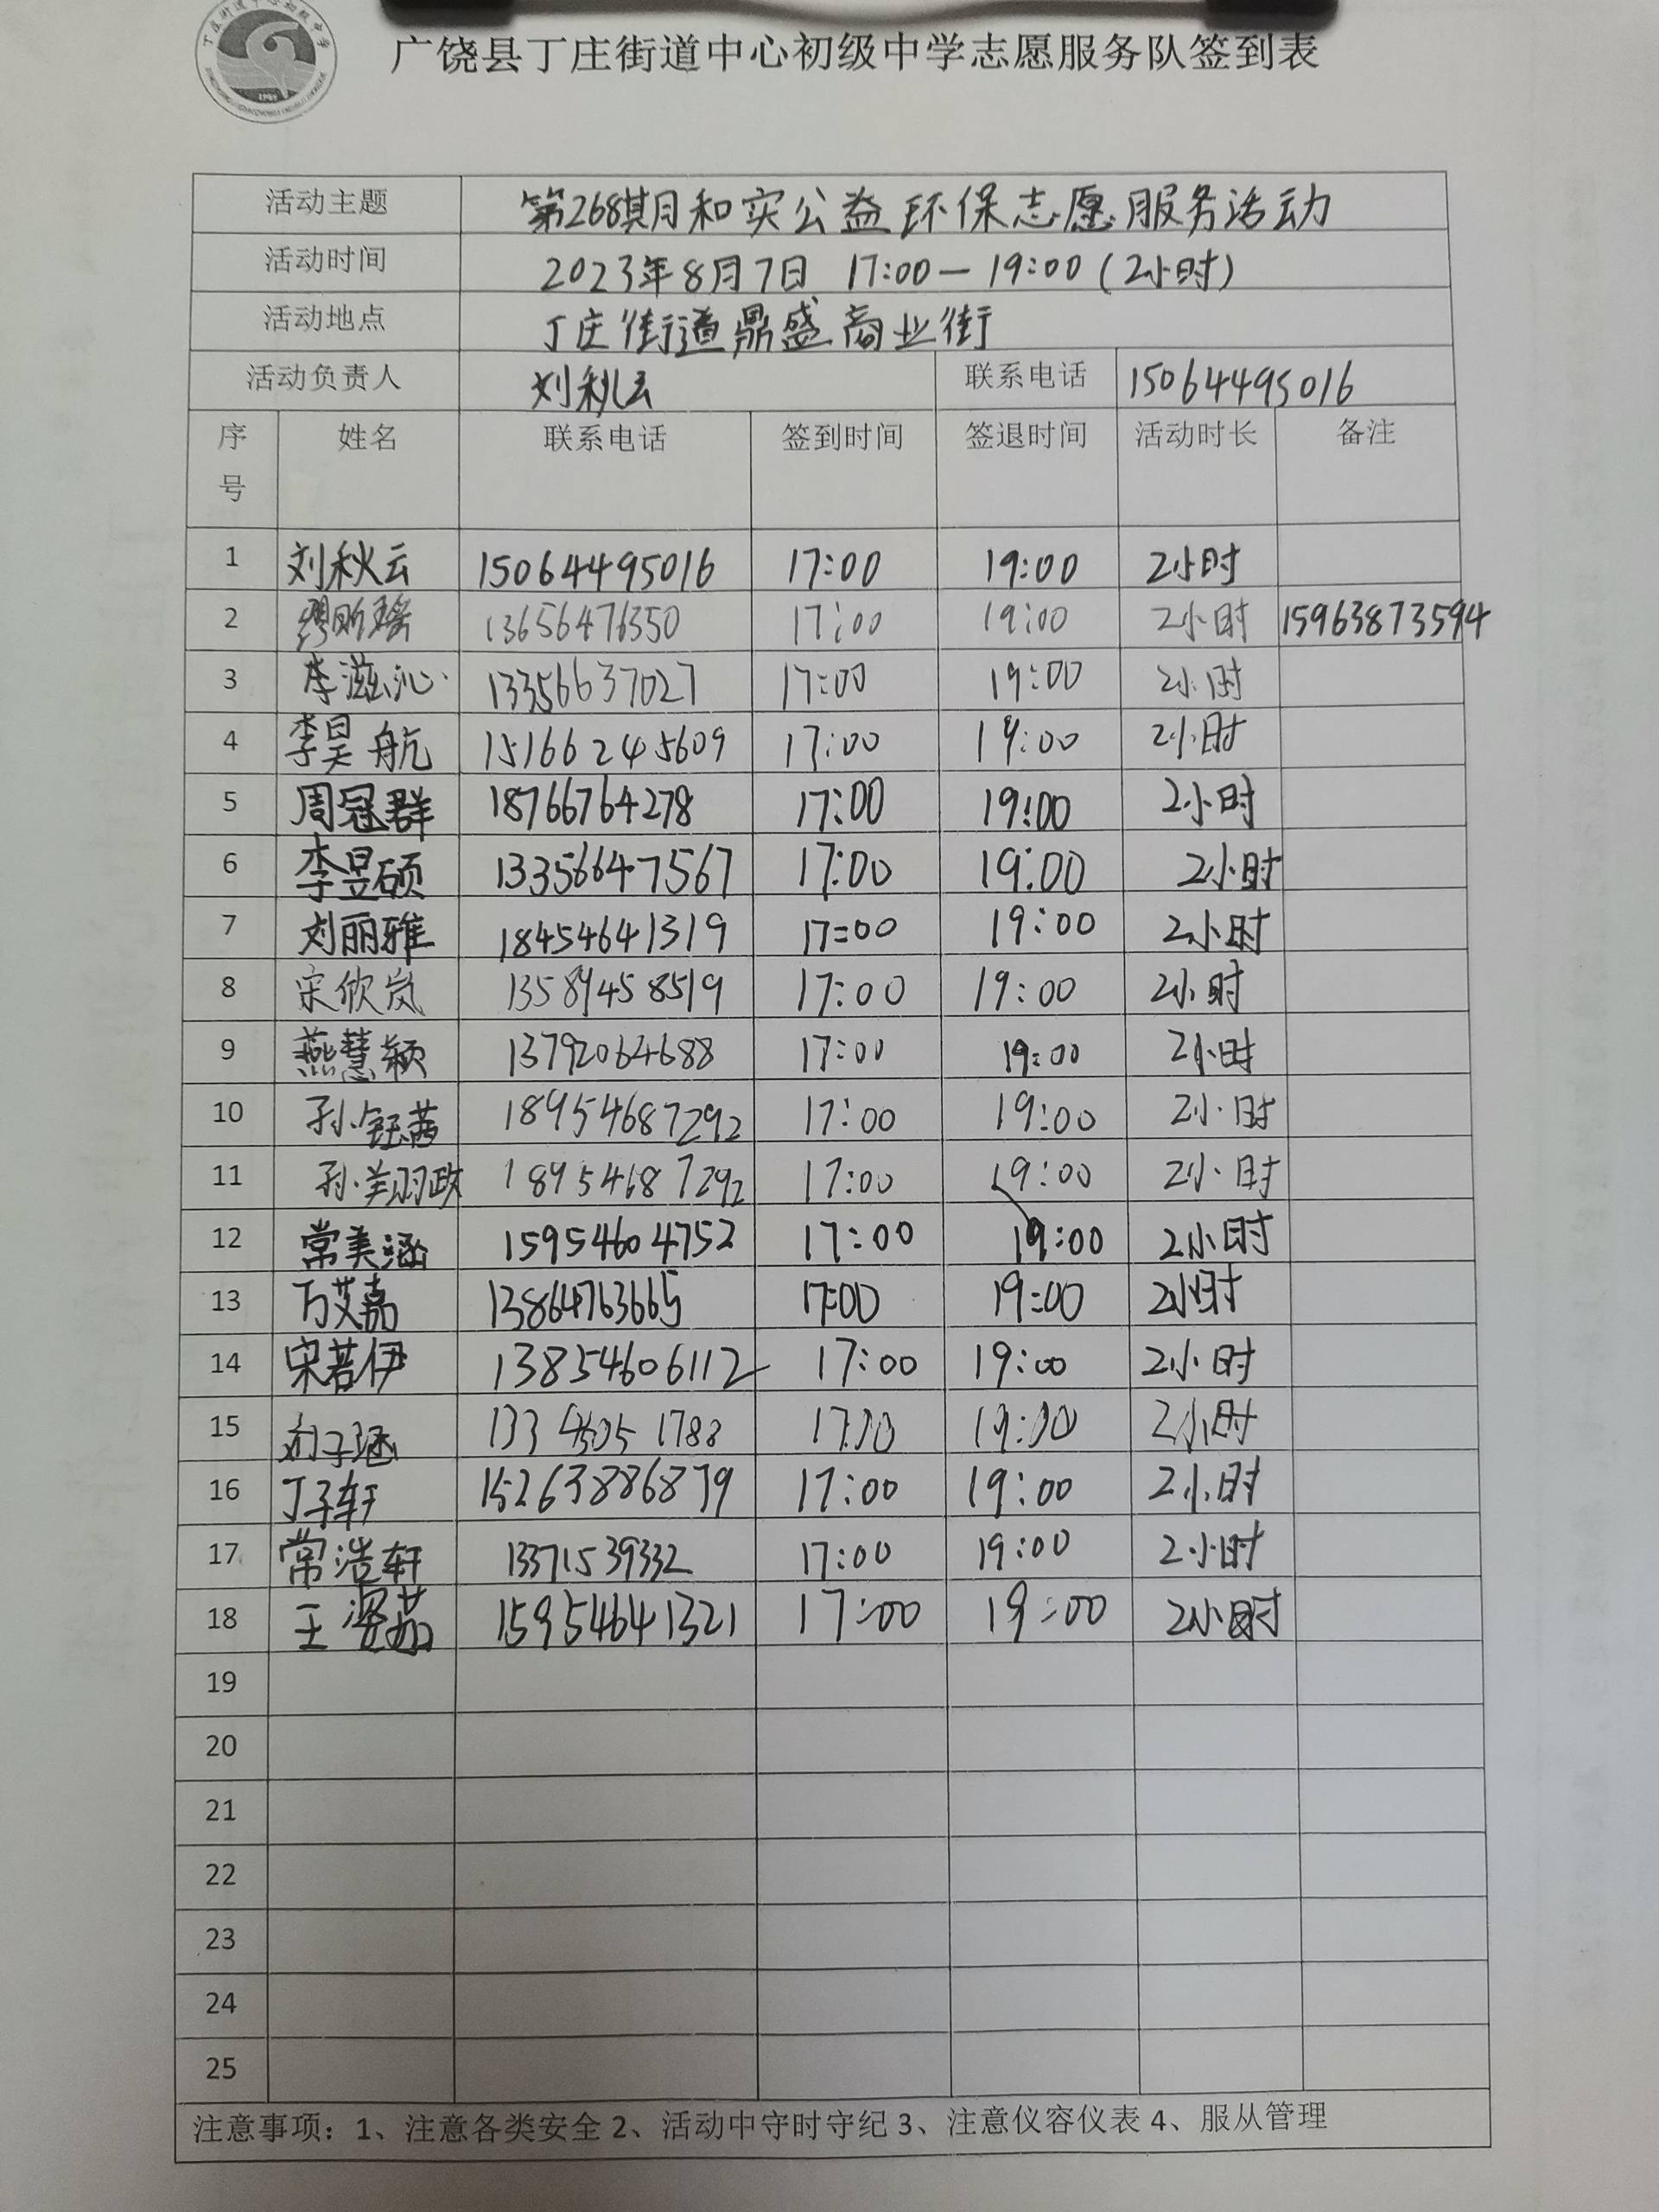 丁庄街道中心初级中学
广饶县丁庄街道中心初级中学志愿服务队签到表
活动主题 第268期月和实公益环保志愿服务活动
活动时间 2023年8月7日 17:00—19:00(2小时)
活动地点 丁庄街道鼎盛商业街
活动负责人 刘秋云 联系电话 15064495016
序号 姓名 联系电话 签到时间 签退时间 活动时长 备注
1 刘秋云 15064495016 17:00 19:00 2小时
2 缪昕瑶 13656476350 17:00 19:00 2小时 15963873594
3 李滋沁 13356637027 17:00 19:00 2小时
4 李昊航 15166245609 17:00 19:00 2小时
5 周冠群 18766764278 17:00 19:00 2小时
6 李昱硕 13356647567 17:00 19:00 2小时
7 刘丽雅 18454641319 17:00 19:00 2小时
8 宋欣岚 13589458519 17:00 19:00 2小时
9 燕慧颖 13792064688 17:00 19:00 2小时
10 孙钰茜 18954687292 17:00 19:00 2小时
11 孙美羽政 18954687292 17:00 19:00 2小时
12 常美涵 15954604752 17:00 19:00 2小时
13 万艾嘉 13864763665 17:00 19:00 2小时
14 宋若伊 13854606112 17:00 19:00 2小时
15 刘子涵 17:00 19:00 2小时
16 丁子轩 15263886879 17:00 19:00 2小时
17 常浩轩 13371539332 17:00 19:00 2小时
18 王 15954641321 17:00 19:00 2小时
19
20
21
22
23
24
25
注意事项：1、注意各类安全 2、活动中守时守纪 3、注意仪容仪表 4、服从管理